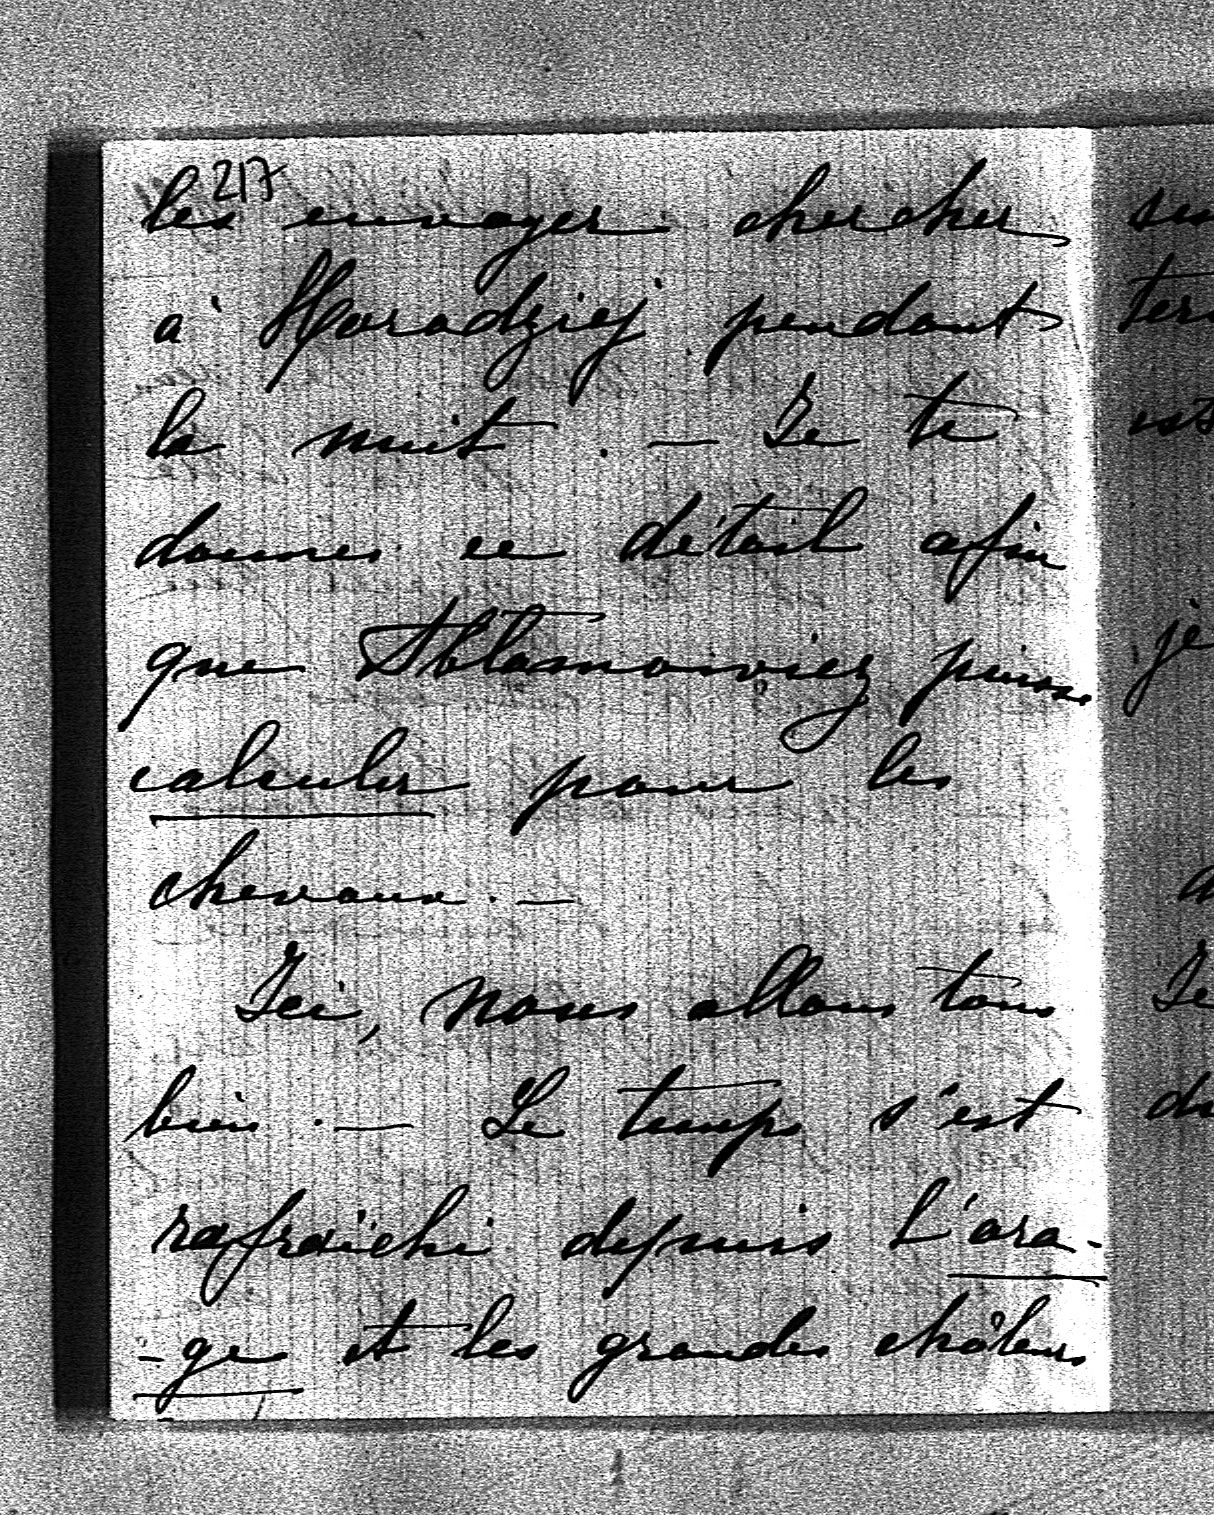 217
les envoyer chercher
à Horodziej pendant
la nuit. — Je te
donnes ce détail afin
que Ablamowicz puisse
calculer pour les
chevaux. —
Ici, nous allons tous
bien. — Le temps s'est
rafraîchi depuis l'ora-
-ge et les grandes châleurs